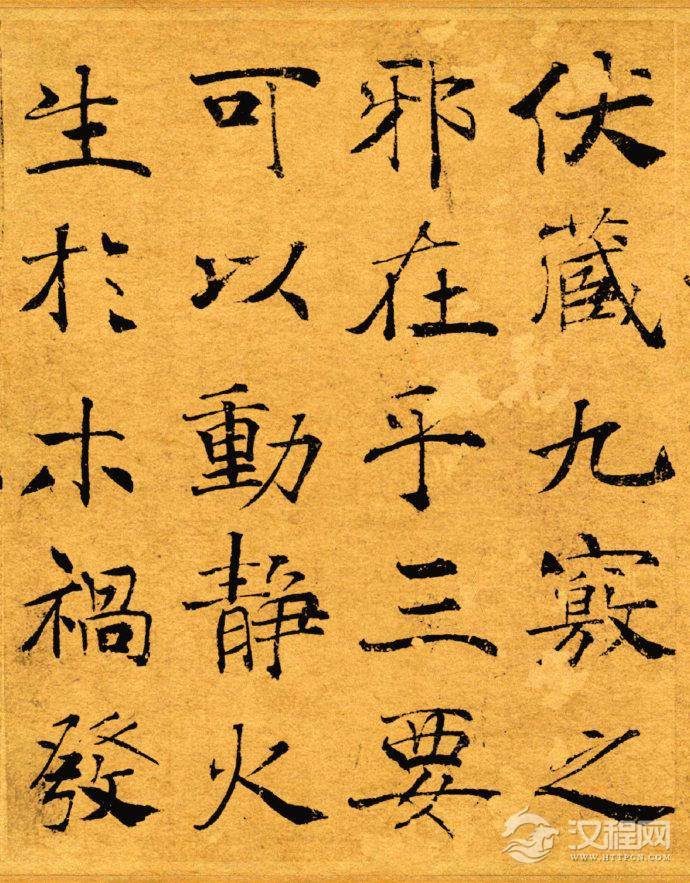 伏藏九竅之
邪在乎三要
可以動靜火
生於木禍發
汉程网
WWW.HTTPCN.COM